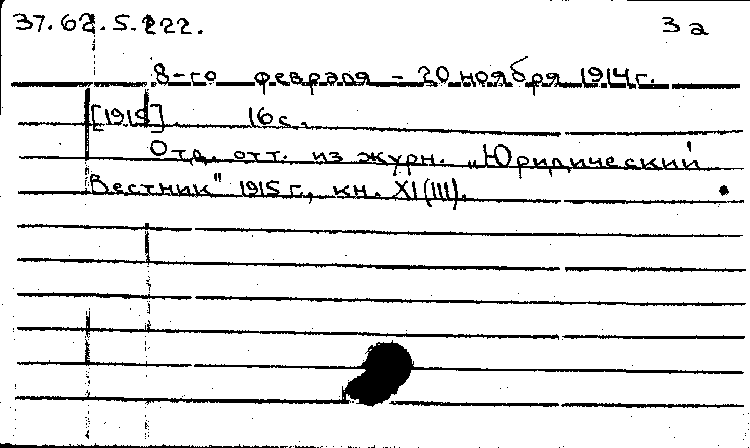 37.62.5.222. 3а
8-го февраля - 20 ноября 1914 г.
[1915]. 16 с.
Отд. отт. из журн. „Юридический
Вестник" 1915 г., кн. XI(III).